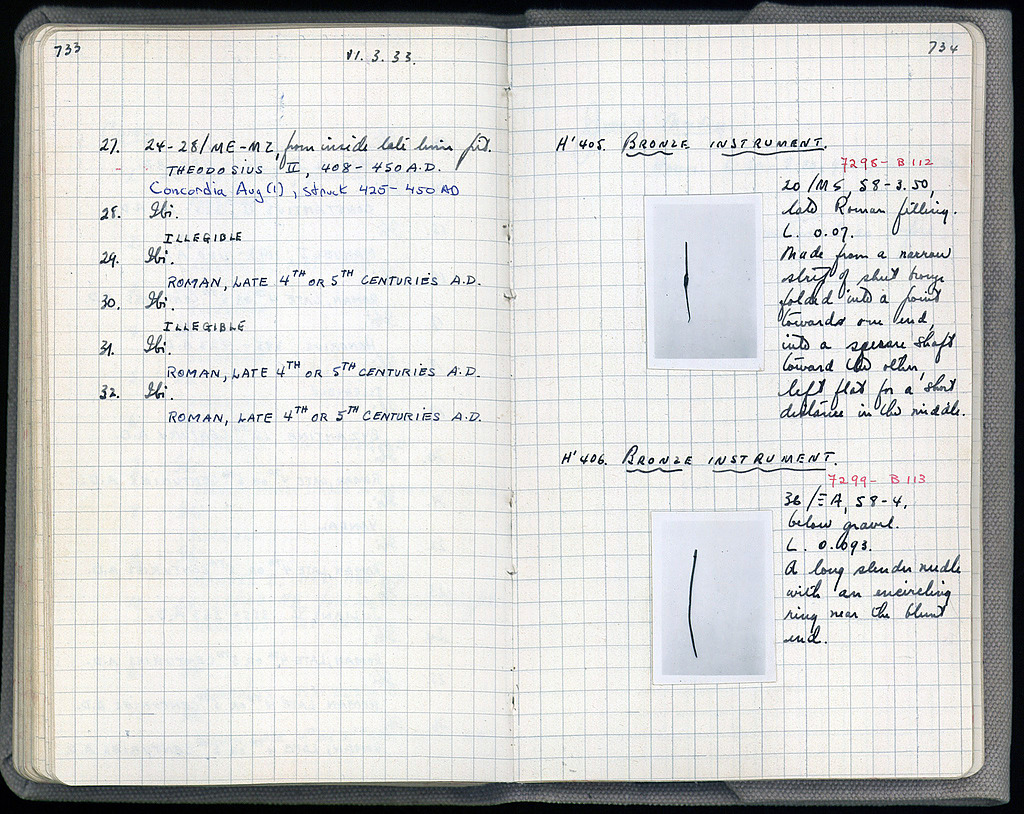 733
VI. 3. 33.
27. 24-28/ME-MZ, from inside late lime pit.
THEODOSIUS II, 408-450 A.D.
Concordia Aug (1), struck 425-450 AD
28. Ibi.
ILLEGIBLE
29. Ibi.
ROMAN, LATE 4TH OR 5TH CENTURIES A.D.
30. Ibi.
ILLEGIBLE
31. Ibi.
ROMAN, LATE 4TH OR 5TH CENTURIES A.D.
32. Ibi.
ROMAN, LATE 4TH OR 5TH CENTURIES A.D.
734
H'405. BRONZE INSTRUMENT.
7298- B 112
20/MS, 58-3.50,
late Roman filling.
L. 0.07.
Made from a narrow
strip of sheet bronze
folded into a point
towards one end,
into a square shaft
toward the other,
left flat for a short
distance in the middle.
H'406. BRONZE INSTRUMENT.
7299- B 113
36/ΞA, 58-4,
below gravel.
L. 0.093.
A long slender needle
with an encircling
ring near the blunt
end.